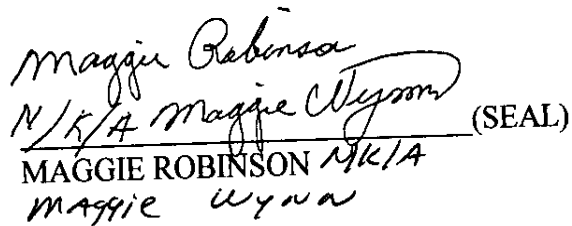 Maggie Robinson
N/K/A Maggie Wynn (SEAL)
MAGGIE ROBINSON N/K/A
MAggiE WyNN